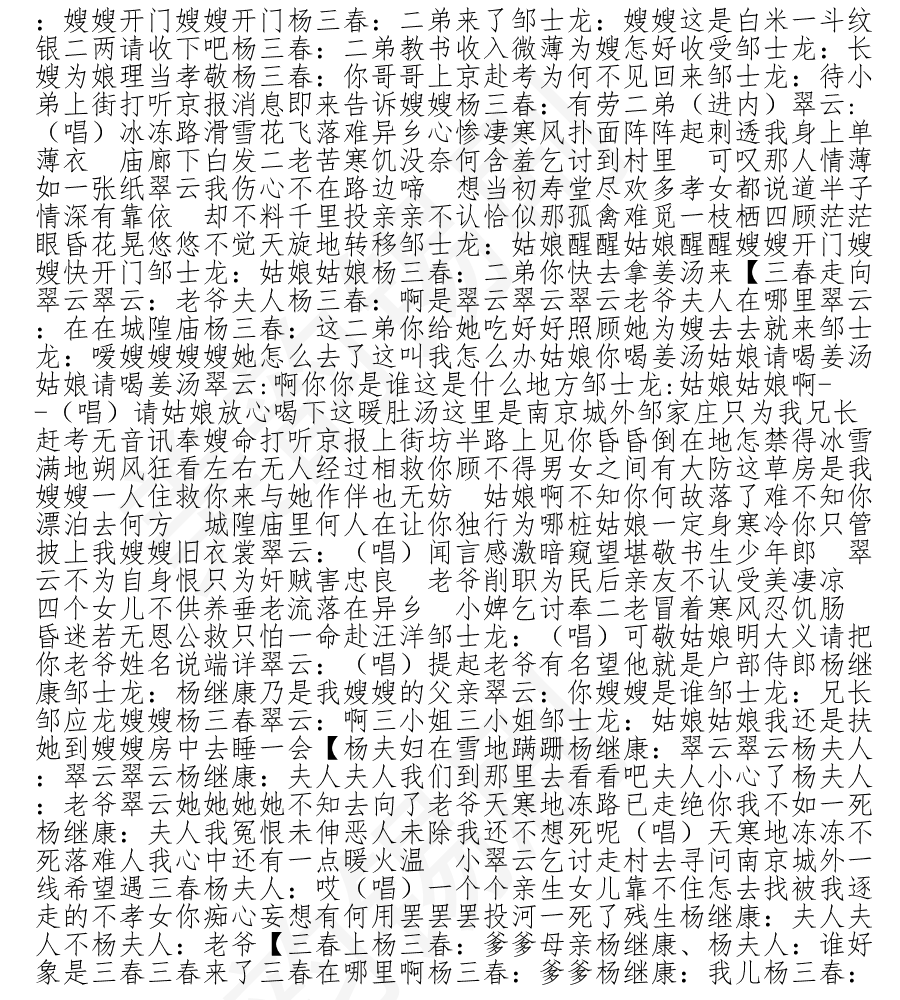 ：嫂嫂开门嫂嫂开门杨三春：二弟来了邹士龙：嫂嫂这是白米一斗纹
银二两请收下吧杨三春：二弟教书收入微薄为嫂怎好收受邹士龙：长
嫂为娘理当孝敬杨三春：你哥哥上京赴考为何不见回来邹士龙：待小
弟上街打听京报消息即来告诉嫂嫂杨三春：有劳二弟（进内）翠云：
（唱）冰冻路滑雪花飞落难异乡心惨凄寒风扑面阵阵起刺透我身上单
薄衣　庙廊下白发二老苦寒饥没奈何含羞乞讨到村里　可叹那人情薄
如一张纸翠云我伤心不在路边啼　想当初寿堂尽欢多孝女都说道半子
情深有靠依　却不料千里投亲亲不认恰似那孤禽难觅一枝栖四顾茫茫
眼昏花晃悠悠不觉天旋地转移邹士龙：姑娘醒醒姑娘醒醒嫂嫂开门嫂
嫂快开门邹士龙：姑娘姑娘杨三春：二弟你快去拿姜汤来【三春走向
翠云翠云：老爷夫人杨三春：啊是翠云翠云翠云老爷夫人在哪里翠云
：在在城隍庙杨三春：这二弟你给她吃好好照顾她为嫂去去就来邹士
龙：嗳嫂嫂嫂嫂她怎么去了这叫我怎么办姑娘你喝姜汤姑娘请喝姜汤
姑娘请喝姜汤翠云:啊你你是谁这是什么地方邹士龙:姑娘姑娘啊-
-（唱）请姑娘放心喝下这暖肚汤这里是南京城外邹家庄只为我兄长
赶考无音讯奉嫂命打听京报上街坊半路上见你昏昏倒在地怎禁得冰雪
满地朔风狂看左右无人经过相救你顾不得男女之间有大防这草房是我
嫂嫂一人住救你来与她作伴也无妨　姑娘啊不知你何故落了难不知你
漂泊去何方　城隍庙里何人在让你独行为哪桩姑娘一定身寒冷你只管
披上我嫂嫂旧衣裳翠云：（唱）闻言感激暗窥望堪敬书生少年郎　翠
云不为自身恨只为奸贼害忠良　老爷削职为民后亲友不认受美凄凉
四个女儿不供养垂老流落在异乡　小婢乞讨奉二老冒着寒风忍饥肠
昏迷若无恩公救只怕一命赴汪洋邹士龙：（唱）可敬姑娘明大义请把
你老爷姓名说端详翠云：（唱）提起老爷有名望他就是户部侍郎杨继
康邹士龙：杨继康乃是我嫂嫂的父亲翠云：你嫂嫂是谁邹士龙：兄长
邹应龙嫂嫂杨三春翠云：啊三小姐三小姐邹士龙：姑娘姑娘我还是扶
她到嫂嫂房中去睡一会【杨夫妇在雪地蹒跚杨继康：翠云翠云杨夫人
：翠云翠云杨继康：夫人夫人我们到那里去看看吧夫人小心了杨夫人
：老爷翠云她她她她不知去向了老爷天寒地冻路已走绝你我不如一死
杨继康：夫人我冤恨未伸恶人未除我还不想死呢（唱）天寒地冻冻不
死落难人我心中还有一点暖火温　小翠云乞讨走村去寻问南京城外一
线希望遇三春杨夫人：哎（唱）一个个亲生女儿靠不住怎去找被我逐
走的不孝女你痴心妄想有何用罢罢罢投河一死了残生杨继康：夫人夫
人不杨夫人：老爷【三春上杨三春：爹爹母亲杨继康、杨夫人：谁好
象是三春三春来了三春在哪里啊杨三春：爹爹杨继康：我儿杨三春：